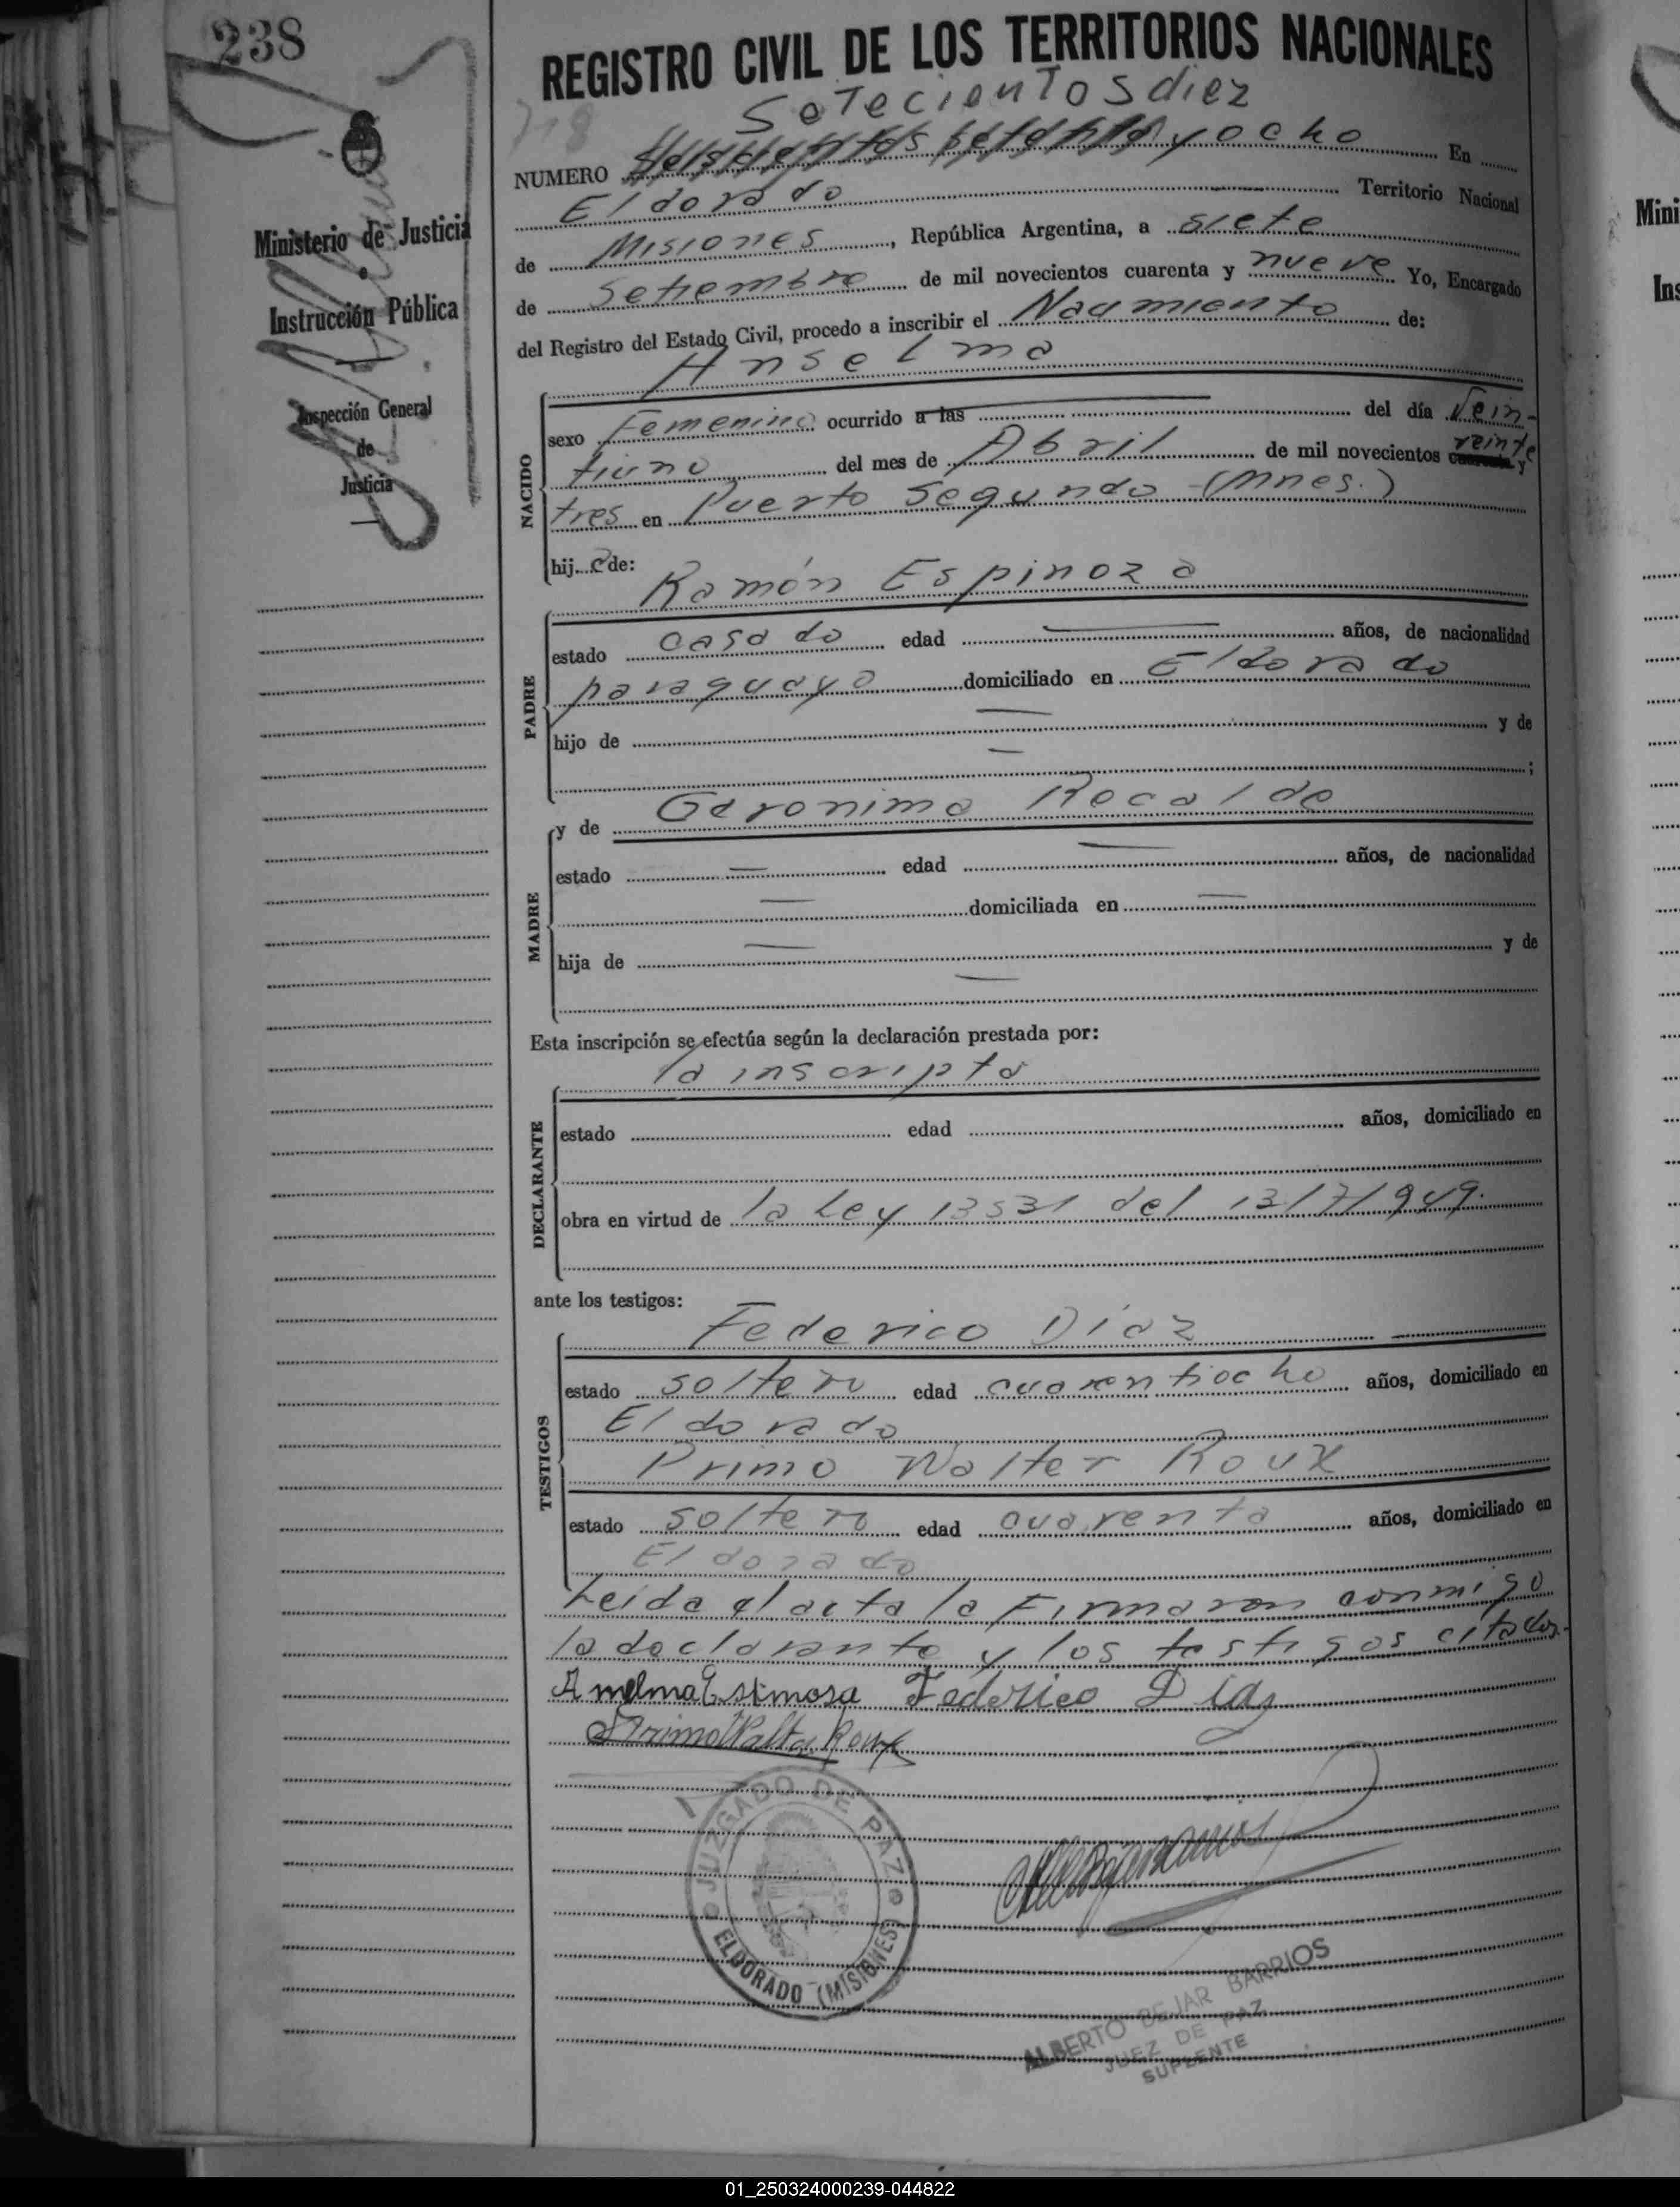 238
REGISTRO CIVIL DE LOS TERRITORIOS NACIONALES
718
Setecientos diez
NUMERO seiscientos setenta y ocho En
Eldorado Territorio Nacional
de Misiones, República Argentina, a siete
de Setiembre de mil novecientos cuarenta y nueve Yo, Encargado
del Registro del Estado Civil, procedo a inscribir el Nacimiento de:
Anselma
Ministerio de Justicia
e
Instrucción Pública
Inspección General
de
Justicia
NACIDO
sexo Femenino ocurrido a las del día Vein-
tiuno del mes de Abril de mil novecientos cuarenta veinte y
tres en Puerto Segundo (Mnes.)
hij a de:
PADRE
Ramón Espinoza
estado casado edad — años, de nacionalidad
paraguayo domiciliado en Eldorado
hijo de — y de
— ;
MADRE
y de Geronima Recalde
estado — edad — años, de nacionalidad
— domiciliada en —
hija de — y de
—
Esta inscripción se efectúa según la declaración prestada por:
DECLARANTE
la inscripta
estado edad años, domiciliado en
obra en virtud de la Ley 13531 del 13/7/949.
ante los testigos:
TESTIGOS
Federico Díaz
estado soltero edad cuarentiocho años, domiciliado en
Eldorado
Primo Walter Roux
estado soltero edad cuarenta años, domiciliado en
Eldorado
Leida el acta la Firmaron conmigo
la declarante y los testigos citados.-
Anselma Espinosa Federico Diaz
Primo Walter Roux
JUZGADO DE PAZ
ELDORADO (MISIONES)
ALBERTO BEJAR BARRIOS
JUEZ DE PAZ
SUPLENTE
Mini
Ins
01_250324000239-044822